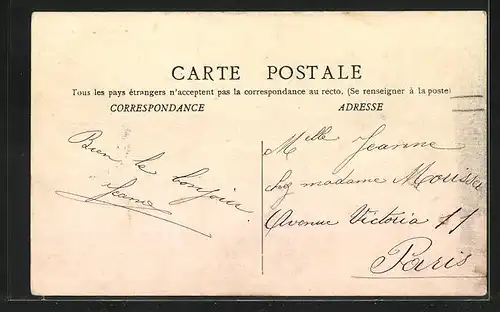 CARTE POSTALE
Tous les pays étrangers n'acceptent pas la correspondance au recto. (Se renseigner à la poste)
CORRESPONDANCE
ADRESSE
Bien le bonjour
Jeanne
Mlle Jeanne
chez madame
Avenue Victoria 11
Paris